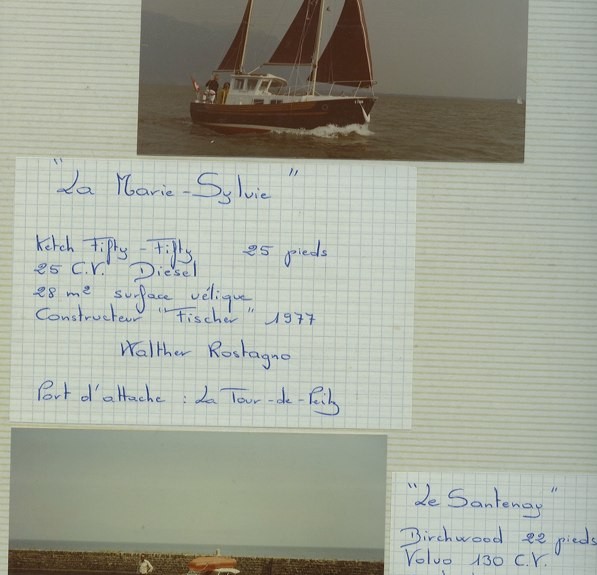 "La Marie-Sylvie"
Ketch Fifty-Fifty 25 pieds
25 C.V. Diesel
28 m² surface vélique
Constructeur "Fischer" 1977
Walther Rostagno
Port d'attache : La Tour-de-Peilz
"Le Santenay"
Birchwood 22 pieds
Volvo 130 C.V.